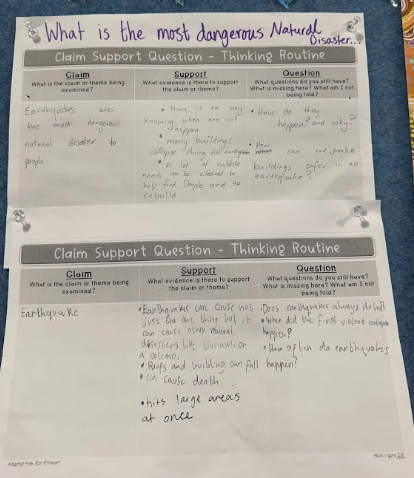 What is the most dangerous Natural
Disaster...
Claim Support Question - Thinking Routine
Claim
What is the claim or theme being
examined?
Support
What evidence is there to support
the claim or theme?
Question
What questions do you still have?
What is missing here? What am I not
being told?
Earthquakes are
the most dangerous
natural disater to
people.
• there is no way
knowing when one will
happen
• many buildings
collapse during an earthquake
• A lot of rubble
needs to be cleared to
help find people and to
rebuild
• How do they
happen? and why?
• How can we make
buildings safer in an
earthquake?
Claim Support Question - Thinking Routine
Claim
What is the claim or theme being
examined?
Support
What evidence is there to support
the claim or theme?
Question
What questions do you still have?
What is missing here? What am I not
being told?
Earthquake
• Earthquakes can cause not
just the one thing but it
can cause other natural
disasters like tsunami or
a volcano.
• Roofs and building can fall
• can cause death
• hits large areas
at once
• Does earthquakes always do
• When did the first violent earthquake
happen?
• How often do earthquakes
happen?